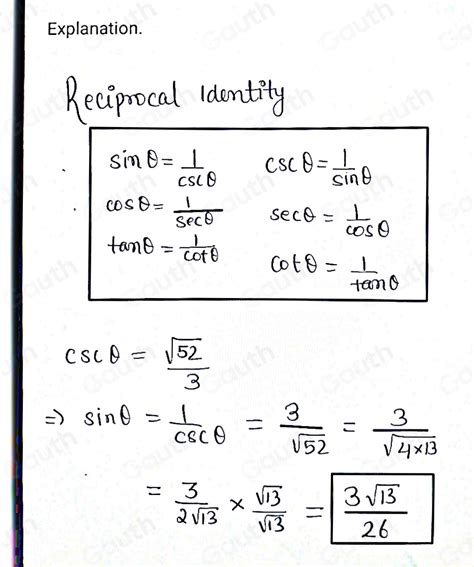 Explanation.
Reciprocal Identity
sin θ = 1/csc θ    csc θ = 1/sin θ
cos θ = 1/sec θ    sec θ = 1/cos θ
tan θ = 1/cot θ    cot θ = 1/tan θ
csc θ = √52/3
⇒ sin θ = 1/csc θ = 3/√52 = 3/√(4×13)
= 3/(2√13) × √13/√13 = 3√13/26